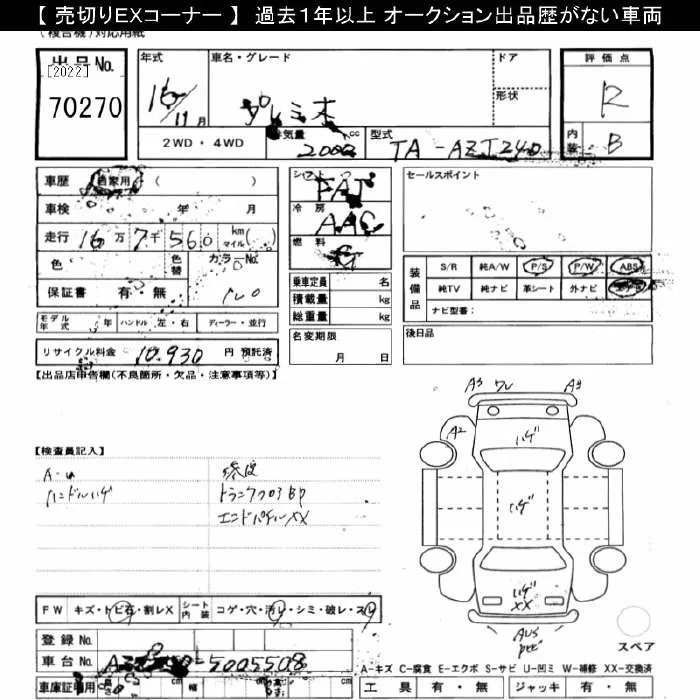 【 売切りEXコーナー 】 過去１年以上 オークション出品歴がない車両
（複合機）対応用紙
出品 No.
[2022]
70270
年式 16年 11月
車名・グレード プレミオ
ドア
形状
評価点 R
内装 B
2WD ・ 4WD
排気量 2000 cc
型式 TA-AZT240
車歴 自家用 （ ）
車検 年 月
走行 16万 7千 560 km マイル
色
色替
カラーNo.
保証書 有・無
シフト FAT
冷房 AAC
燃料 G
乗車定員 名
積載量 kg
総重量 kg
セールスポイント
装備品
S/R 純A/W P/S P/W ABS
純TV 純ナビ 革シート 外ナビ エアB
ナビ型番：
モデル年式 年 ハンドル 左・右 ディーラー・並行
リサイクル料金 10,930 円 預託済
名変期限 月 日
後日品
【出品店申告欄（不良箇所・欠品・注意事項等）】
【検査員記入】
ハンドルハゲ
修復
トランクフロアBP
エンドパネルXX
A3 ワレ A3
A2
ハゲ
ハゲ
ハゲ
XX
FW キズ・トビ石・割レX
シート内装 コゲ・穴・汚レ・シミ・破レ・スレ
登録 No.
車台 No. 5005508
車庫証明用 cm 幅 cm 高さ cm
スペア
A－キズ C－腐食 E－エクボ S－サビ U－凹ミ W－補修 XX－交換済
工具 有・無 ジャッキ 有・無